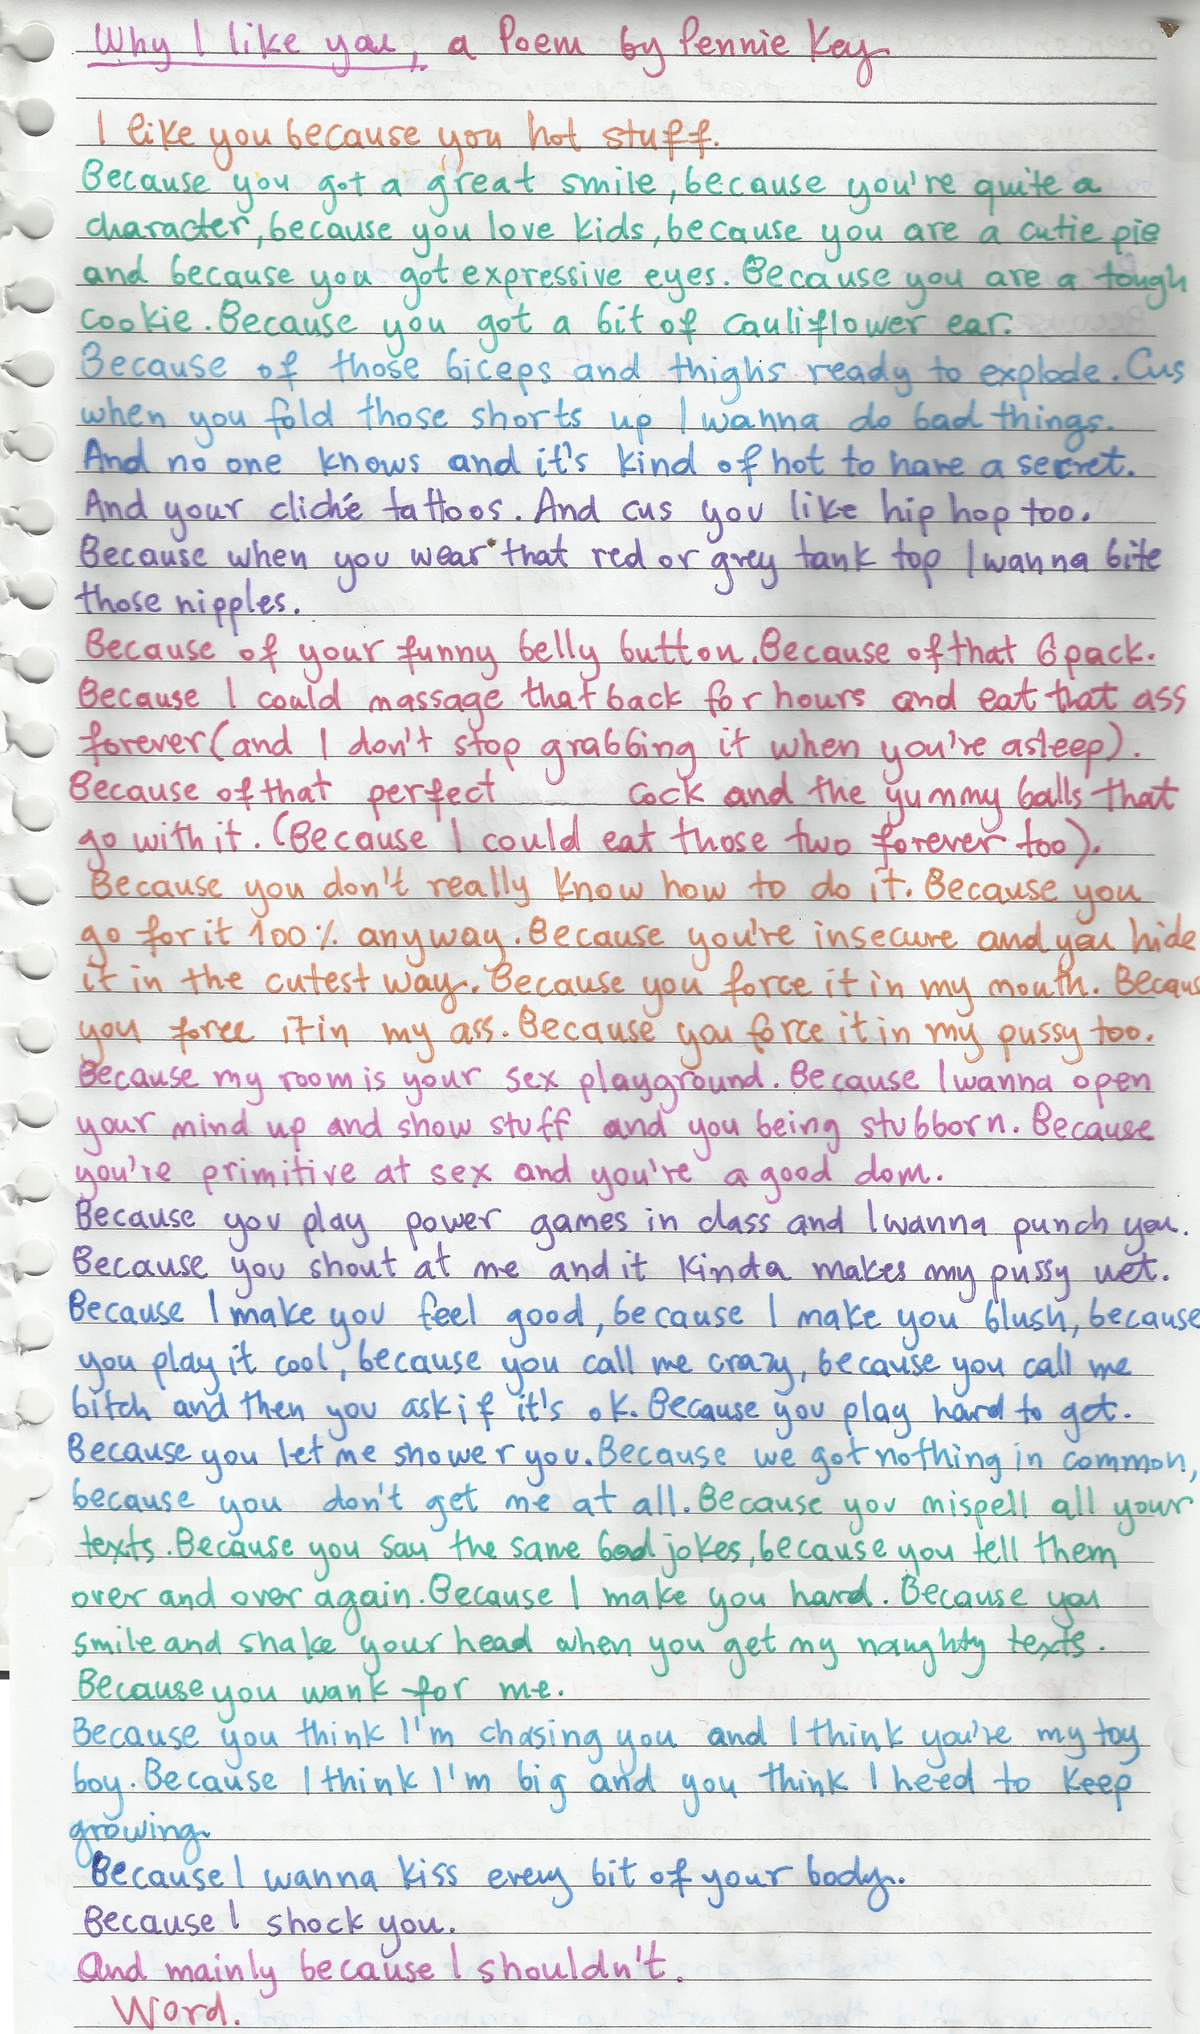 Why I like you, a Poem by Pennie Key
I like you because you hot stuff.
Because you got a great smile, because you're quite a
character, because you love kids, because you are a cutie pie
and because you got expressive eyes. Because you are a tough
cookie. Because you got a bit of cauliflower ear.
Because of those biceps and thighs ready to explode. Cus
when you fold those shorts up I wanna do bad things.
And no one knows and it's kind of hot to have a secret.
And your cliché tattoos. And cus you like hip hop too.
Because when you wear that red or grey tank top I wanna bite
those nipples.
Because of your funny belly button. Because of that 6 pack.
Because I could massage that back for hours and eat that ass
forever (and I don't stop grabbing it when you're asleep).
Because of that perfect cock and the yummy balls that
go with it. (Because I could eat those two forever too).
Because you don't really know how to do it. Because you
go for it 100% anyway. Because you're insecure and you hide
it in the cutest way. Because you force it in my mouth. Becaus
you force it in my ass. Because you force it in my pussy too.
Because my room is your sex playground. Because I wanna open
your mind up and show stuff and you being stubborn. Because
you're primitive at sex and you're a good dom.
Because you play power games in class and I wanna punch you.
Because you shout at me and it kinda makes my pussy wet.
Because I make you feel good, because I make you blush, because
you play it cool, because you call me crazy, because you call me
bitch and then you ask if it's ok. Because you play hard to get.
Because you let me shower you. Because we got nothing in common,
because you don't get me at all. Because you mispell all your
texts. Because you say the same bad jokes, because you tell them
over and over again. Because I make you hard. Because you
smile and shake your head when you get my naughty texts.
Because you wank for me.
Because you think I'm chasing you and I think you're my toy
boy. Because I think I'm big and you think I need to keep
growing.
Because I wanna kiss every bit of your body.
Because I shock you.
And mainly because I shouldn't.
Word.